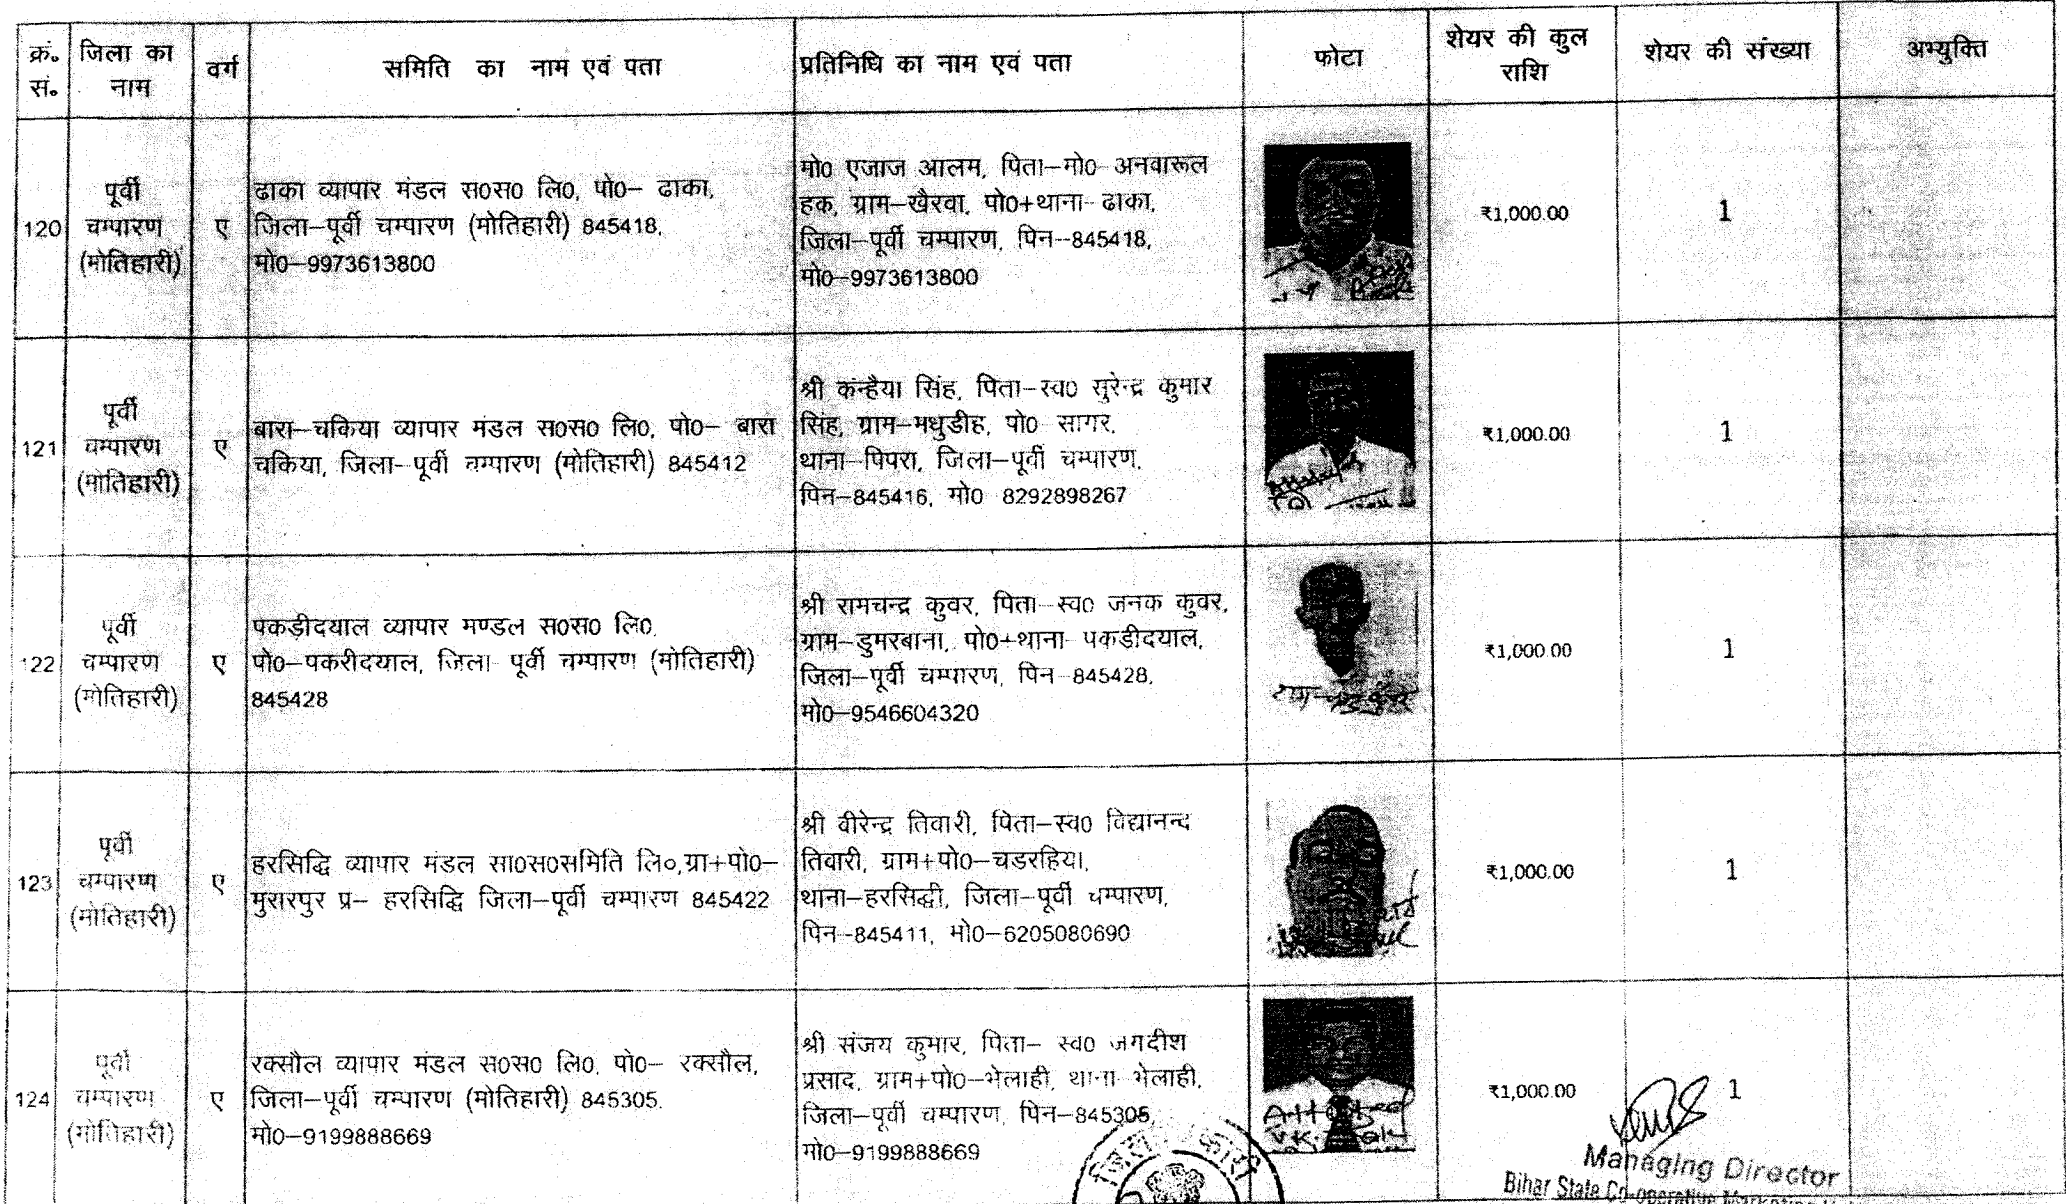 क्रं. सं. जिला का नाम वर्ग समिति का नाम एवं पता प्रतिनिधि का नाम एवं पता फोटा शेयर की कुल राशि शेयर की संख्या अभ्युक्ति
120
पूर्वी
चम्पारण
(मोतिहारी)
ए
ढाका व्यापार मंडल स0स0 लि0, पो0– ढाका,
जिला–पूर्वी चम्पारण (मोतिहारी) 845418,
मो0–9973613800
मो0 एजाज आलम, पिता–मो0 अनवारूल
हक, ग्राम–खैरवा, पो0+थाना– ढाका,
जिला–पूर्वी चम्पारण, पिन–845418,
मो0–9973613800
₹1,000.00
1
121
पूर्वी
चम्पारण
(मोतिहारी)
ए
बारा–चकिया व्यापार मंडल स0स0 लि0, पो0– बारा
चकिया, जिला–पूर्वी चम्पारण (मोतिहारी) 845412
श्री कन्हैया सिंह, पिता–स्व0 सुरेन्द्र कुमार
सिंह, ग्राम–मधुडीह, पो0 सागर,
थाना–पिपरा, जिला–पूर्वी चम्पारण,
पिन–845416, मो0 8292898267
₹1,000.00
1
122
पूर्वी
चम्पारण
(मोतिहारी)
ए
पकड़ीदयाल व्यापार मण्डल स0स0 लि0,
पो0–पकरीदयाल, जिला पूर्वी चम्पारण (मोतिहारी)
845428
श्री रामचन्द्र कुवर, पिता–स्व0 जनक कुवर,
ग्राम–डुमरबाना, पो0+थाना पकड़ीदयाल,
जिला–पूर्वी चम्पारण, पिन–845428,
मो0–9546604320
₹1,000.00
1
123
पूर्वी
चम्पारण
(मोतिहारी)
ए
हरसिद्धि व्यापार मंडल सा0स0समिति लि०,ग्रा+पो0–
मुरारपुर प्र– हरसिद्धि जिला–पूर्वी चम्पारण 845422
श्री वीरेन्द्र तिवारी, पिता–स्व0 विद्यानन्द
तिवारी, ग्राम+पो0–चडरहिया,
थाना–हरसिद्धी, जिला–पूर्वी चम्पारण,
पिन–845411, मो0–6205080690
₹1,000.00
1
124
पूर्वी
चम्पारण
(मोतिहारी)
ए
रक्सौल व्यापार मंडल स0स0 लि0, पो0– रक्सौल,
जिला–पूर्वी चम्पारण (मोतिहारी) 845305,
मो0–9199888669
श्री संजय कुमार, पिता– स्व0 जगदीश
प्रसाद, ग्राम+पो0–भेलाही, थाना भेलाही,
जिला–पूर्वी चम्पारण, पिन–845305,
मो0–9199888669
Attested
₹1,000.00
1
Managing Director
Bihar State Co-operative Marketing